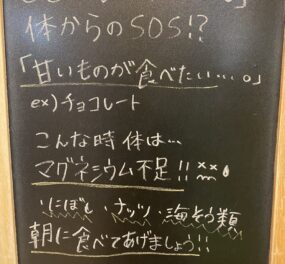 体からのSOS!?
「甘いものが食べたい…。」
ex)チョコレート
こんな時体は…
マグネシウム不足!!
・にぼし ・ナッツ ・海そう類
朝に食べてあげましょう!!